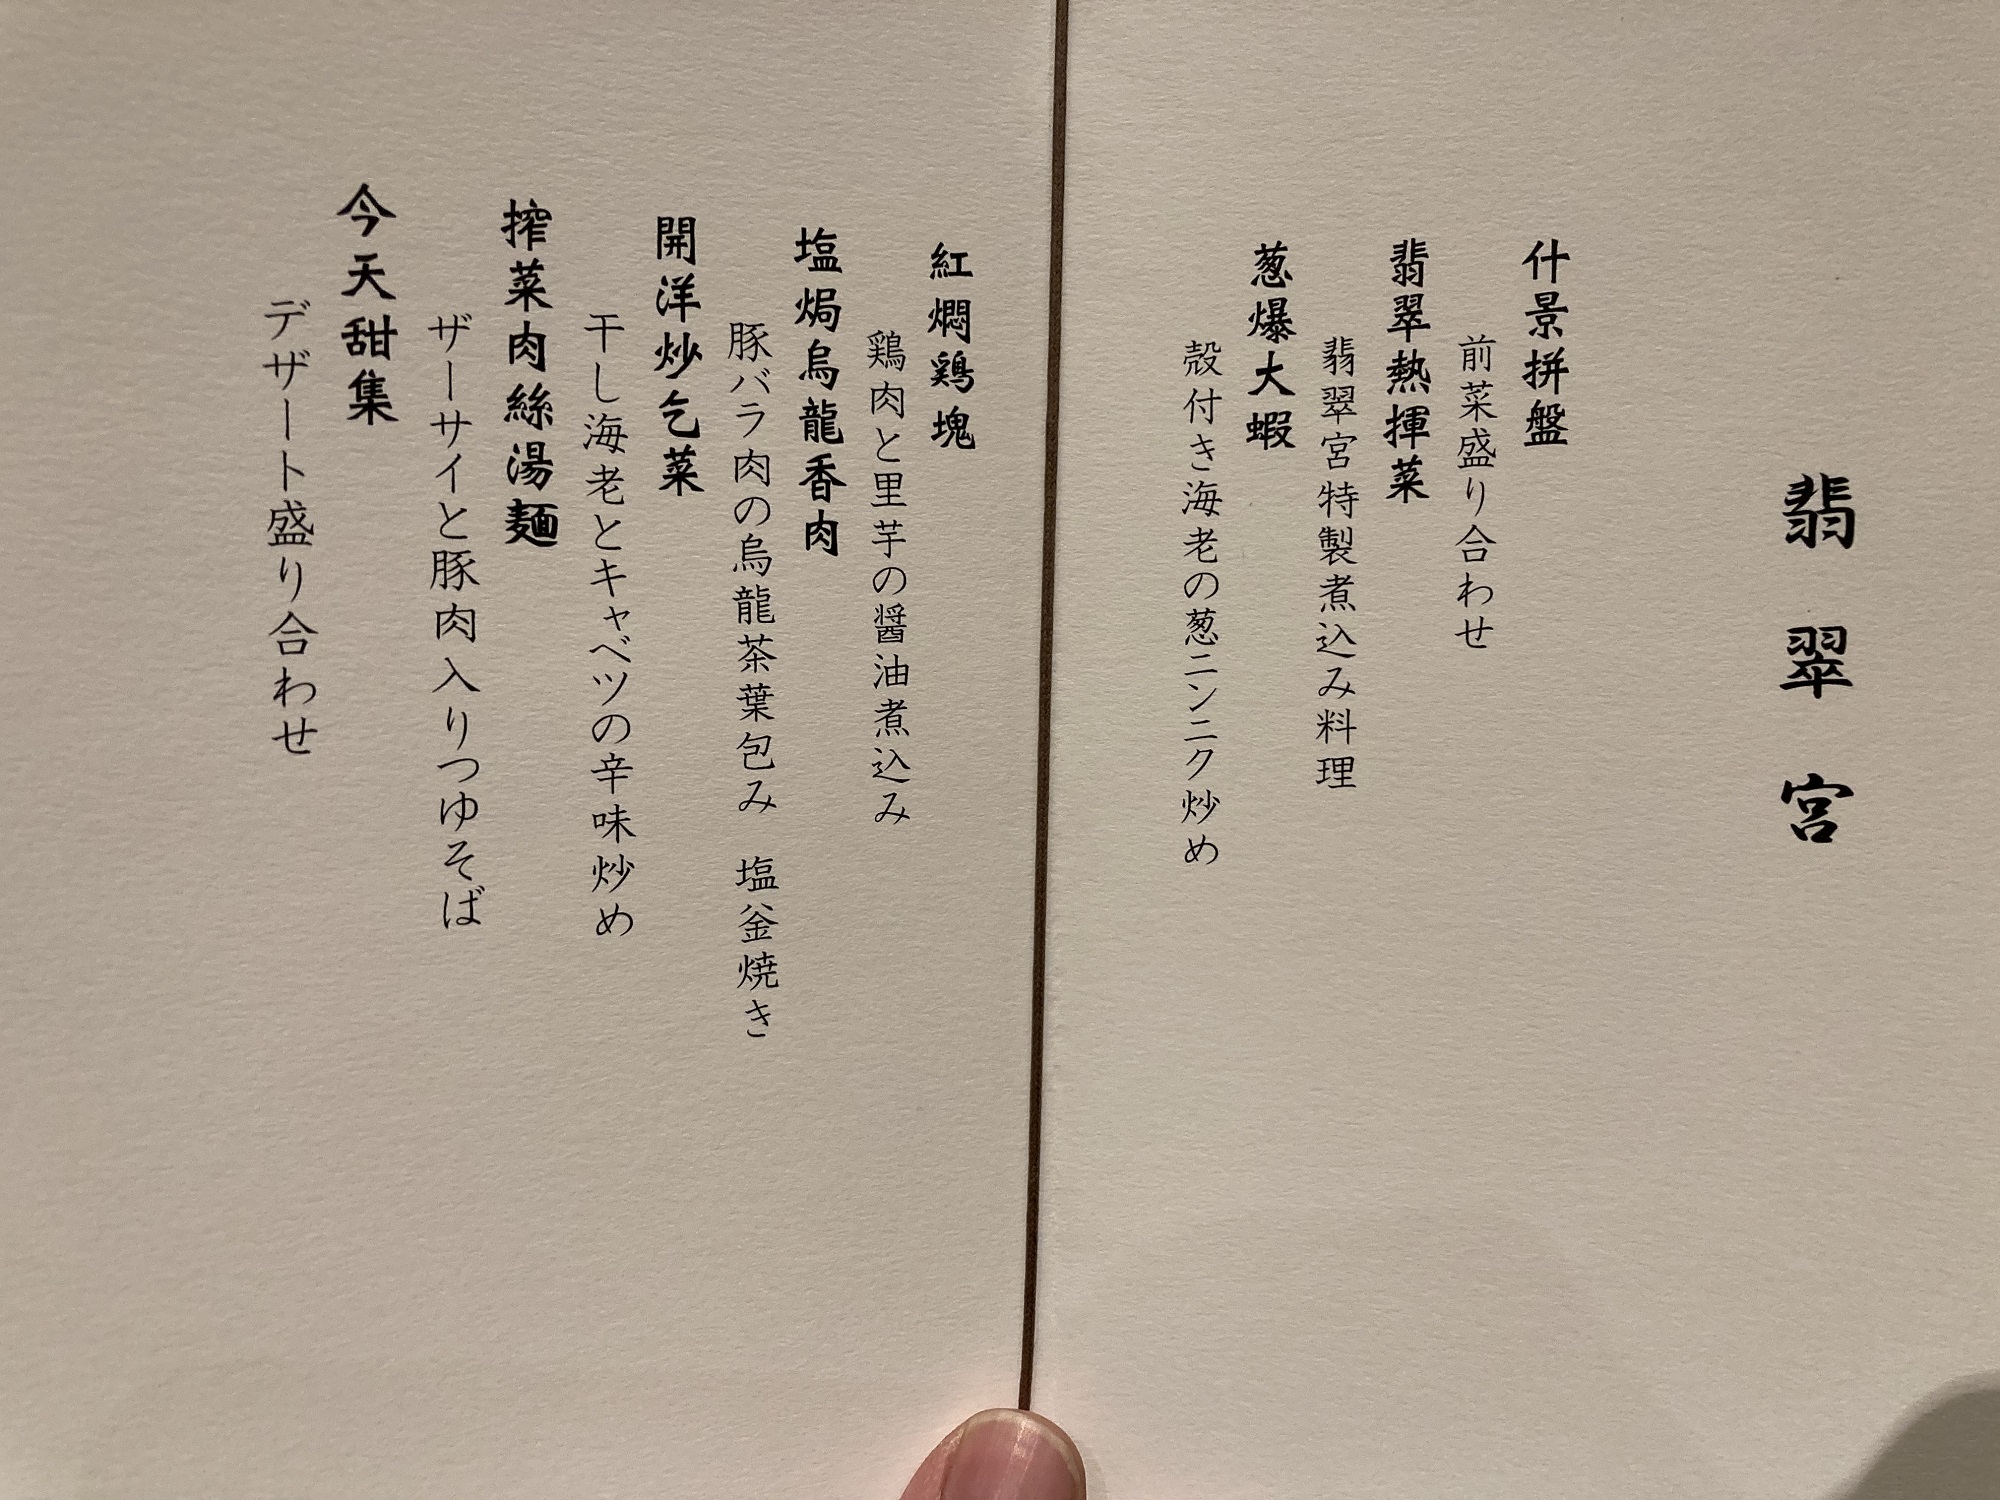 翡翠宮
什景拼盤
前菜盛り合わせ
翡翠熱揮菜
翡翠宮特製煮込み料理
葱爆大蝦
殻付き海老の葱ニンニク炒め
紅燜鶏塊
鶏肉と里芋の醤油煮込み
塩焗烏龍香肉
豚バラ肉の烏龍茶葉包み　塩釜焼き
開洋炒乞菜
干し海老とキャベツの辛味炒め
搾菜肉絲湯麺
ザーサイと豚肉入りつゆそば
今天甜集
デザート盛り合わせ